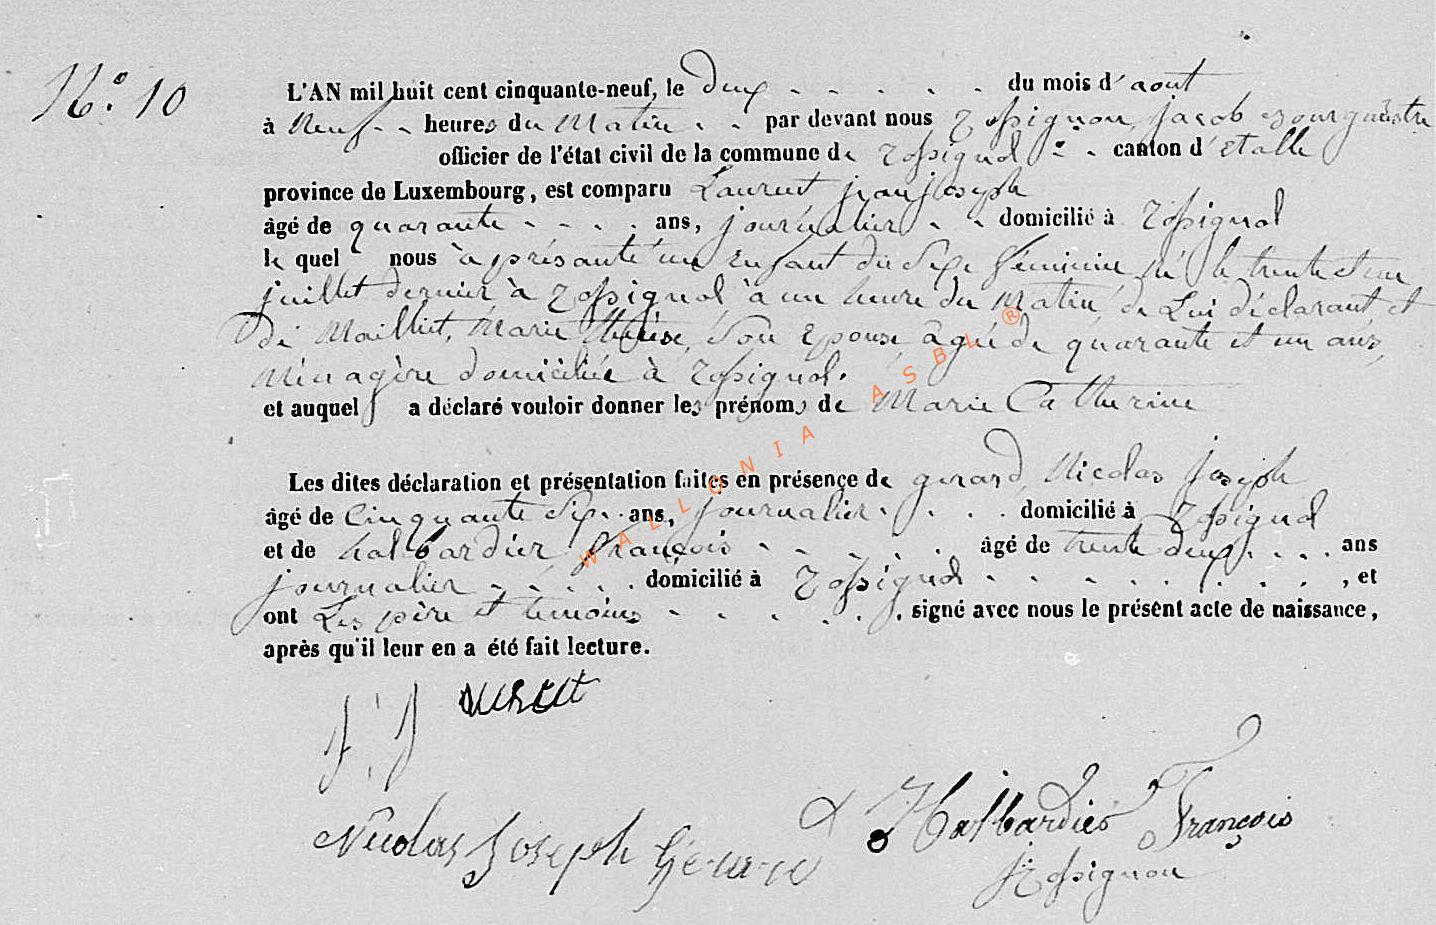 N.° 10
L'AN mil huit cent cinquante-neuf, le deux - - - - - du mois d'aout
à neuf - - heures du matin - - par devant nous Rossignon, jacob Bourguèstre
officier de l'état civil de la commune de Rossignol - - canton d'Etalle
province de Luxembourg, est comparu Laurent jean joseph
âgé de quarante - - - - ans, journalier - - domicilié à Rossignol
le quel nous à présanté un Enfant du Sexe féminin né le trente et un
juillet dernier à Rossignol à un heure du Matin, de Lui déclarant et
de Mailliet, Marie thérèse, Son Epouse, âgée de quarante et un ans,
Ménagère domiciliée à Rossignol.
et auquel a déclaré vouloir donner les prénoms de Marie Catherine
Les dites déclaration et présentation faites en présence de gerard, Nicolas joseph
âgé de Cinquante Six - - ans, journalier - - - - domicilié à Rossignol
et de halbardier françois - - - - - âgé de trente deux - - - - ans
journalier - - - - - domicilié à Rossignol - - - - - - - - , et
ont Les père et temoins - - - - - , signé avec nous le présent acte de naissance,
après qu'il leur en a été fait lecture.
J. J. Laurent
Nicolas Joseph Gerard
Halbardier François
Rossignon
WALLONIA ASBL ®